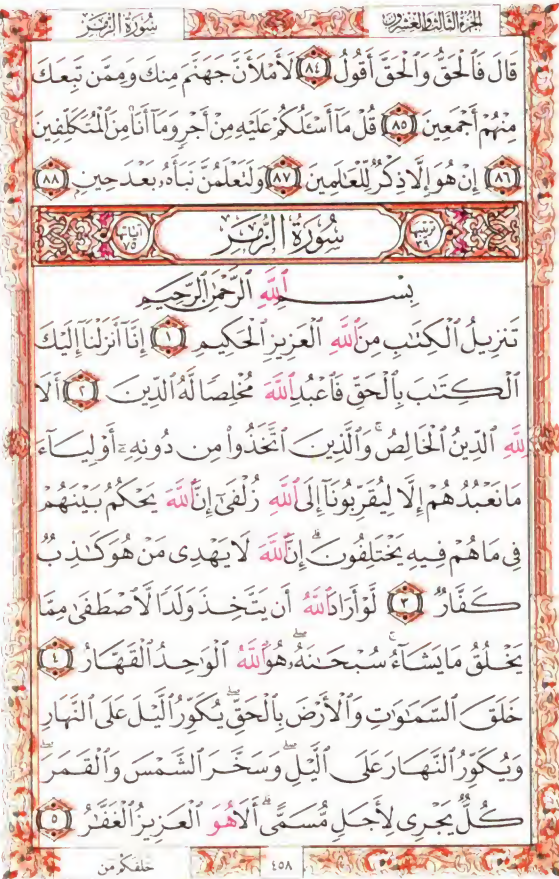 الجزء الثالث والعشرون
سُورَةُ الزُّمَرِ
قَالَ فَٱلْحَقُّ وَٱلْحَقَّ أَقُولُ ٨٤ لَأَمْلَأَنَّ جَهَنَّمَ مِنكَ وَمِمَّن تَبِعَكَ
مِنْهُمْ أَجْمَعِينَ ٨٥ قُلْ مَآ أَسْـَٔلُكُمْ عَلَيْهِ مِنْ أَجْرٍ وَمَآ أَنَا۠ مِنَ ٱلْمُتَكَلِّفِينَ
٨٦ إِنْ هُوَ إِلَّا ذِكْرٌ لِّلْعَٰلَمِينَ ٨٧ وَلَتَعْلَمُنَّ نَبَأَهُۥ بَعْدَ حِينٍۭ ٨٨
ترتيبها ٣٩ سُورَةُ الزُّمَرِ آياتها ٧٥
بِسْمِ ٱللَّهِ ٱلرَّحْمَٰنِ ٱلرَّحِيمِ
تَنزِيلُ ٱلْكِتَٰبِ مِنَ ٱللَّهِ ٱلْعَزِيزِ ٱلْحَكِيمِ ١ إِنَّآ أَنزَلْنَآ إِلَيْكَ
ٱلْكِتَٰبَ بِٱلْحَقِّ فَٱعْبُدِ ٱللَّهَ مُخْلِصًا لَّهُ ٱلدِّينَ ٢ أَلَا
لِلَّهِ ٱلدِّينُ ٱلْخَالِصُ ۚ وَٱلَّذِينَ ٱتَّخَذُوا۟ مِن دُونِهِۦٓ أَوْلِيَآءَ
مَا نَعْبُدُهُمْ إِلَّا لِيُقَرِّبُونَآ إِلَى ٱللَّهِ زُلْفَىٰٓ إِنَّ ٱللَّهَ يَحْكُمُ بَيْنَهُمْ
فِى مَا هُمْ فِيهِ يَخْتَلِفُونَ ۗ إِنَّ ٱللَّهَ لَا يَهْدِى مَنْ هُوَ كَٰذِبٌ
كَفَّارٌ ٣ لَّوْ أَرَادَ ٱللَّهُ أَن يَتَّخِذَ وَلَدًا لَّٱصْطَفَىٰ مِمَّا
يَخْلُقُ مَا يَشَآءُ ۚ سُبْحَٰنَهُۥ ۖ هُوَ ٱللَّهُ ٱلْوَٰحِدُ ٱلْقَهَّارُ ٤
خَلَقَ ٱلسَّمَٰوَٰتِ وَٱلْأَرْضَ بِٱلْحَقِّ ۖ يُكَوِّرُ ٱلَّيْلَ عَلَى ٱلنَّهَارِ
وَيُكَوِّرُ ٱلنَّهَارَ عَلَى ٱلَّيْلِ ۖ وَسَخَّرَ ٱلشَّمْسَ وَٱلْقَمَرَ ۖ
كُلٌّ يَجْرِى لِأَجَلٍ مُّسَمًّى ۗ أَلَا هُوَ ٱلْعَزِيزُ ٱلْغَفَّٰرُ ٥
٤٥٨
خلقكم من